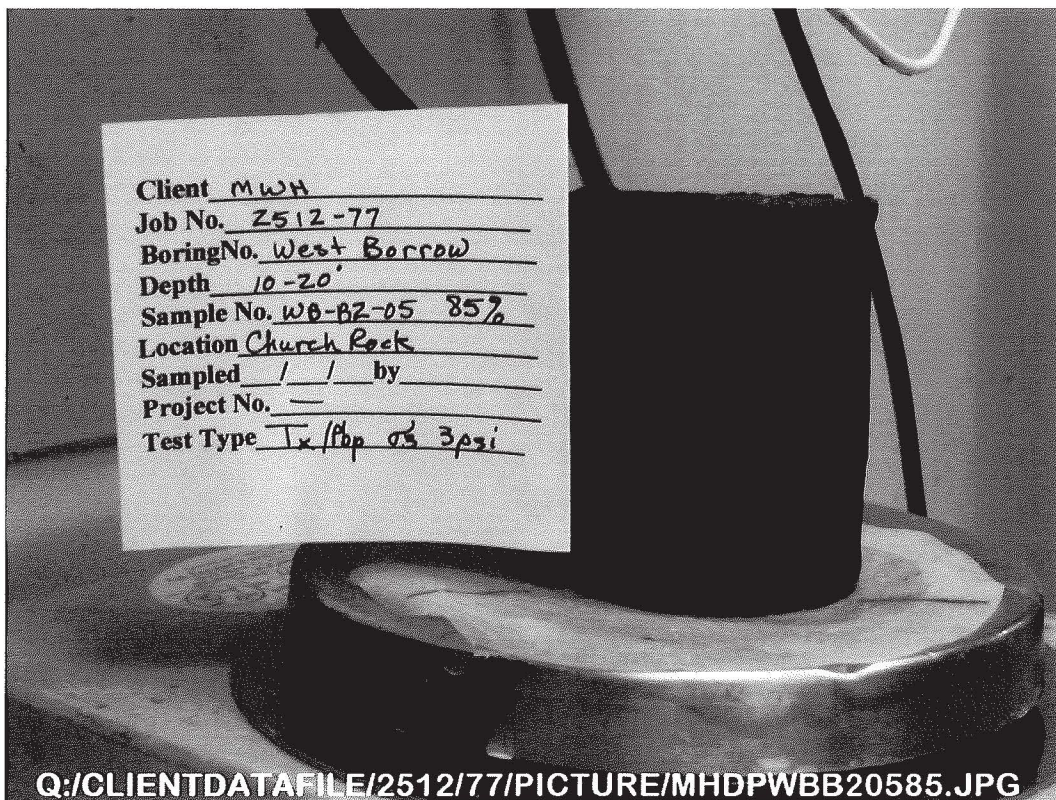 Client MWH
Job No. 2512-77
BoringNo. West Borrow
Depth 10-20'
Sample No. WB-B2-05 85%
Location Church Rock
Sampled / / by
Project No. —
Test Type Tx/Pbp σ3 3psi
Q:/CLIENTDATAFILE/2512/77/PICTURE/MHDPWBB20585.JPG